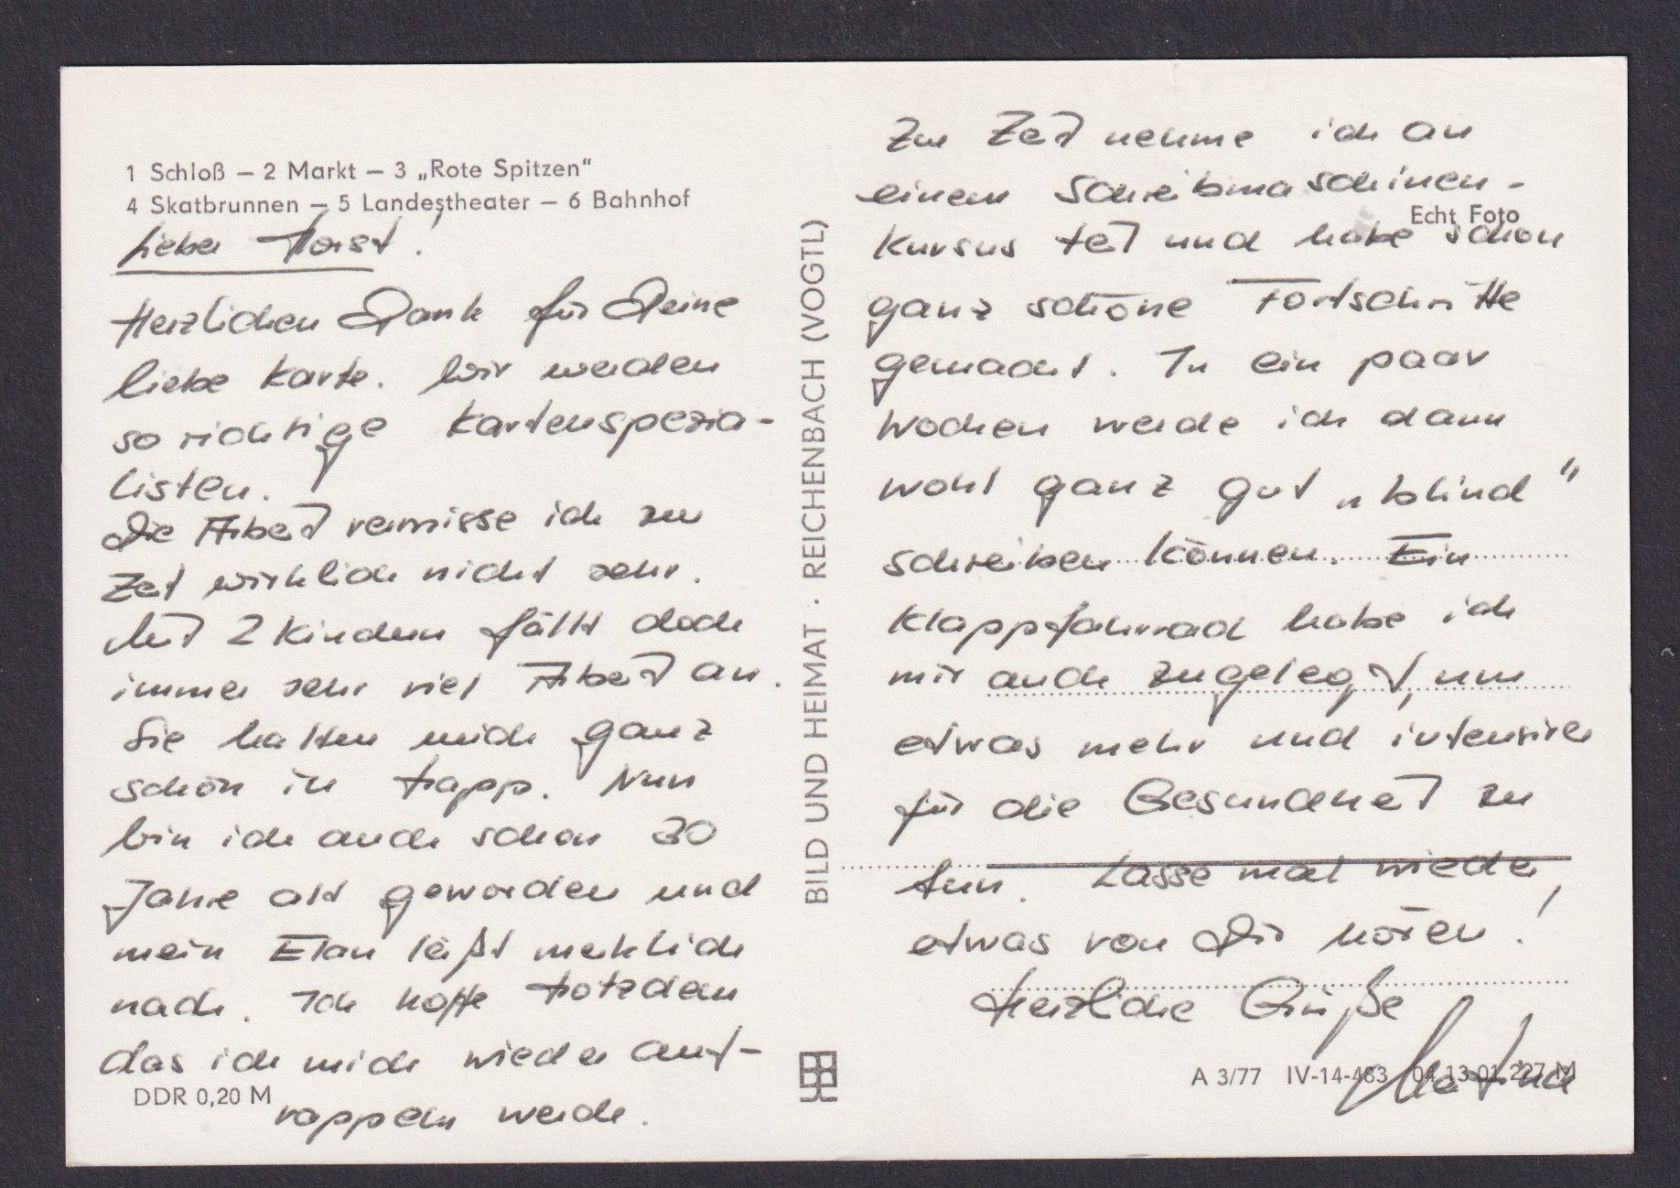 1 Schloß – 2 Markt – 3 „Rote Spitzen"
4 Skatbrunnen – 5 Landestheater – 6 Bahnhof
Lieber Horst!
Herzlichen Dank für Deine
liebe Karte. Wir werden
so richtige Kartenspezia-
listen.
Die Arbeit vermisse ich zur
Zeit wirklich nicht sehr.
Mit 2 Kindern fällt doch
immer sehr viel Arbeit an.
Sie halten mich ganz
schön in trapp. Nun
bin ich auch schon 30
Jahre alt geworden und
mein Elan läßt merklich
nach. Ich hoffe trotzdem
das ich mich wieder auf-
rappeln werde.
DDR 0,20 M
BILD UND HEIMAT · REICHENBACH (VOGTL)
Zur Zeit nehme ich an
einem Schreibmaschinen-
Echt Foto
kursus teil und habe schon
ganz schöne Fortschritte
gemacht. In ein paar
Wochen werde ich dann
wohl ganz gut „blind"
schreiben können. Ein
Klappfahrrad habe ich
mir auch zugelegt, um
etwas mehr und intensiver
für die Gesundheit zu
tun. Lasse mal wieder
etwas von Dir hören!
Herzliche Grüße
Martina
A 3/77 IV-14-483 04 13 01 227 M